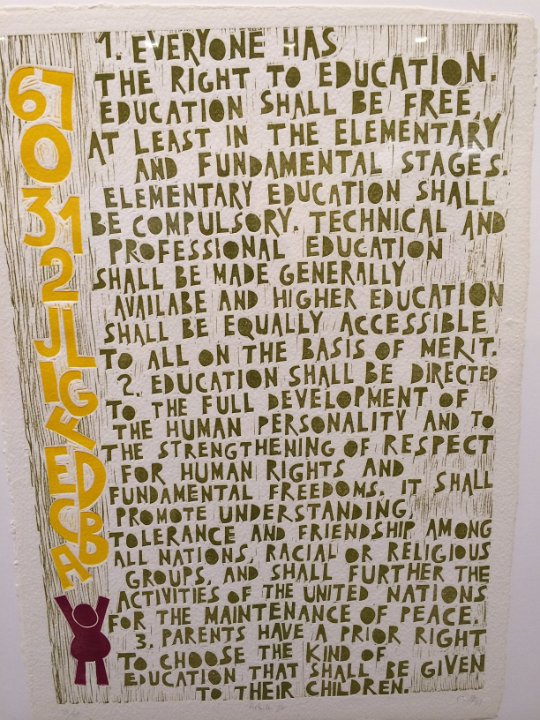 1. EVERYONE HAS
THE RIGHT TO EDUCATION.
EDUCATION SHALL BE FREE
AT LEAST IN THE ELEMENTARY
AND FUNDAMENTAL STAGES.
ELEMENTARY EDUCATION SHALL
BE COMPULSORY. TECHNICAL AND
PROFESSIONAL EDUCATION
SHALL BE MADE GENERALLY
AVAILABE AND HIGHER EDUCATION
SHALL BE EQUALLY ACCESSIBLE
TO ALL ON THE BASIS OF MERIT.
2. EDUCATION SHALL BE DIRECTED
TO THE FULL DEVELOPMENT OF
THE HUMAN PERSONALITY AND TO
THE STRENGTHENING OF RESPECT
FOR HUMAN RIGHTS AND
FUNDAMENTAL FREEDOMS. IT SHALL
PROMOTE UNDERSTANDING,
TOLERANCE AND FRIENDSHIP AMONG
ALL NATIONS, RACIAL OR RELIGIOUS
GROUPS, AND SHALL FURTHER THE
ACTIVITIES OF THE UNITED NATIONS
FOR THE MAINTENANCE OF PEACE.
3. PARENTS HAVE A PRIOR RIGHT
TO CHOOSE THE KIND OF
EDUCATION THAT SHALL BE GIVEN
TO THEIR CHILDREN.
67
0
31
2
JL
IG
F
ED
CB
A